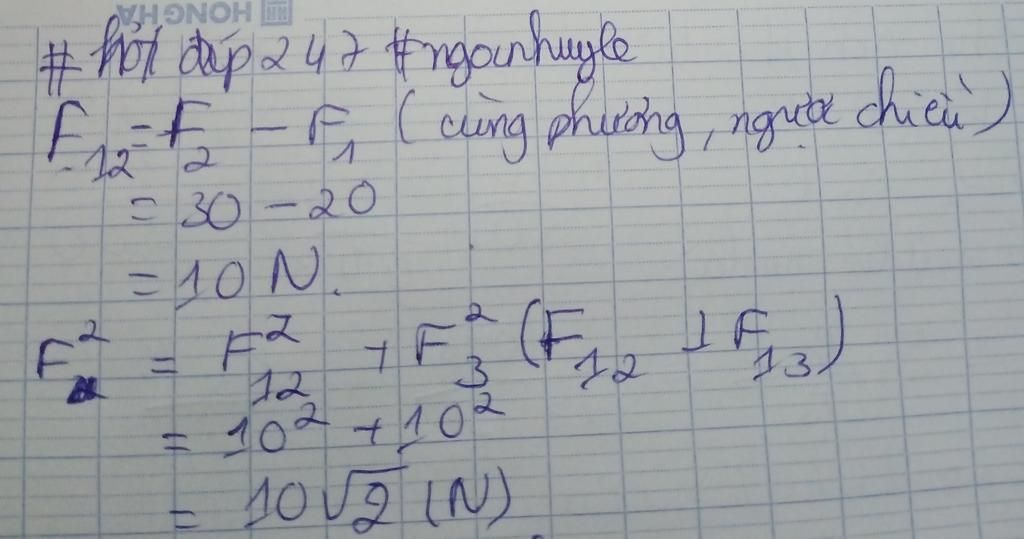 HONGHA
# hỏi đáp 247 #ngocnhuyle
F₁₂ = F₂ - F₁ (cùng phương, ngược chiều)
= 30 - 20
= 10 N.
F² = F₁₂² + F₃² (F₁₂ ⊥ F₁₃)
= 10² + 10²
= 10√2 (N)